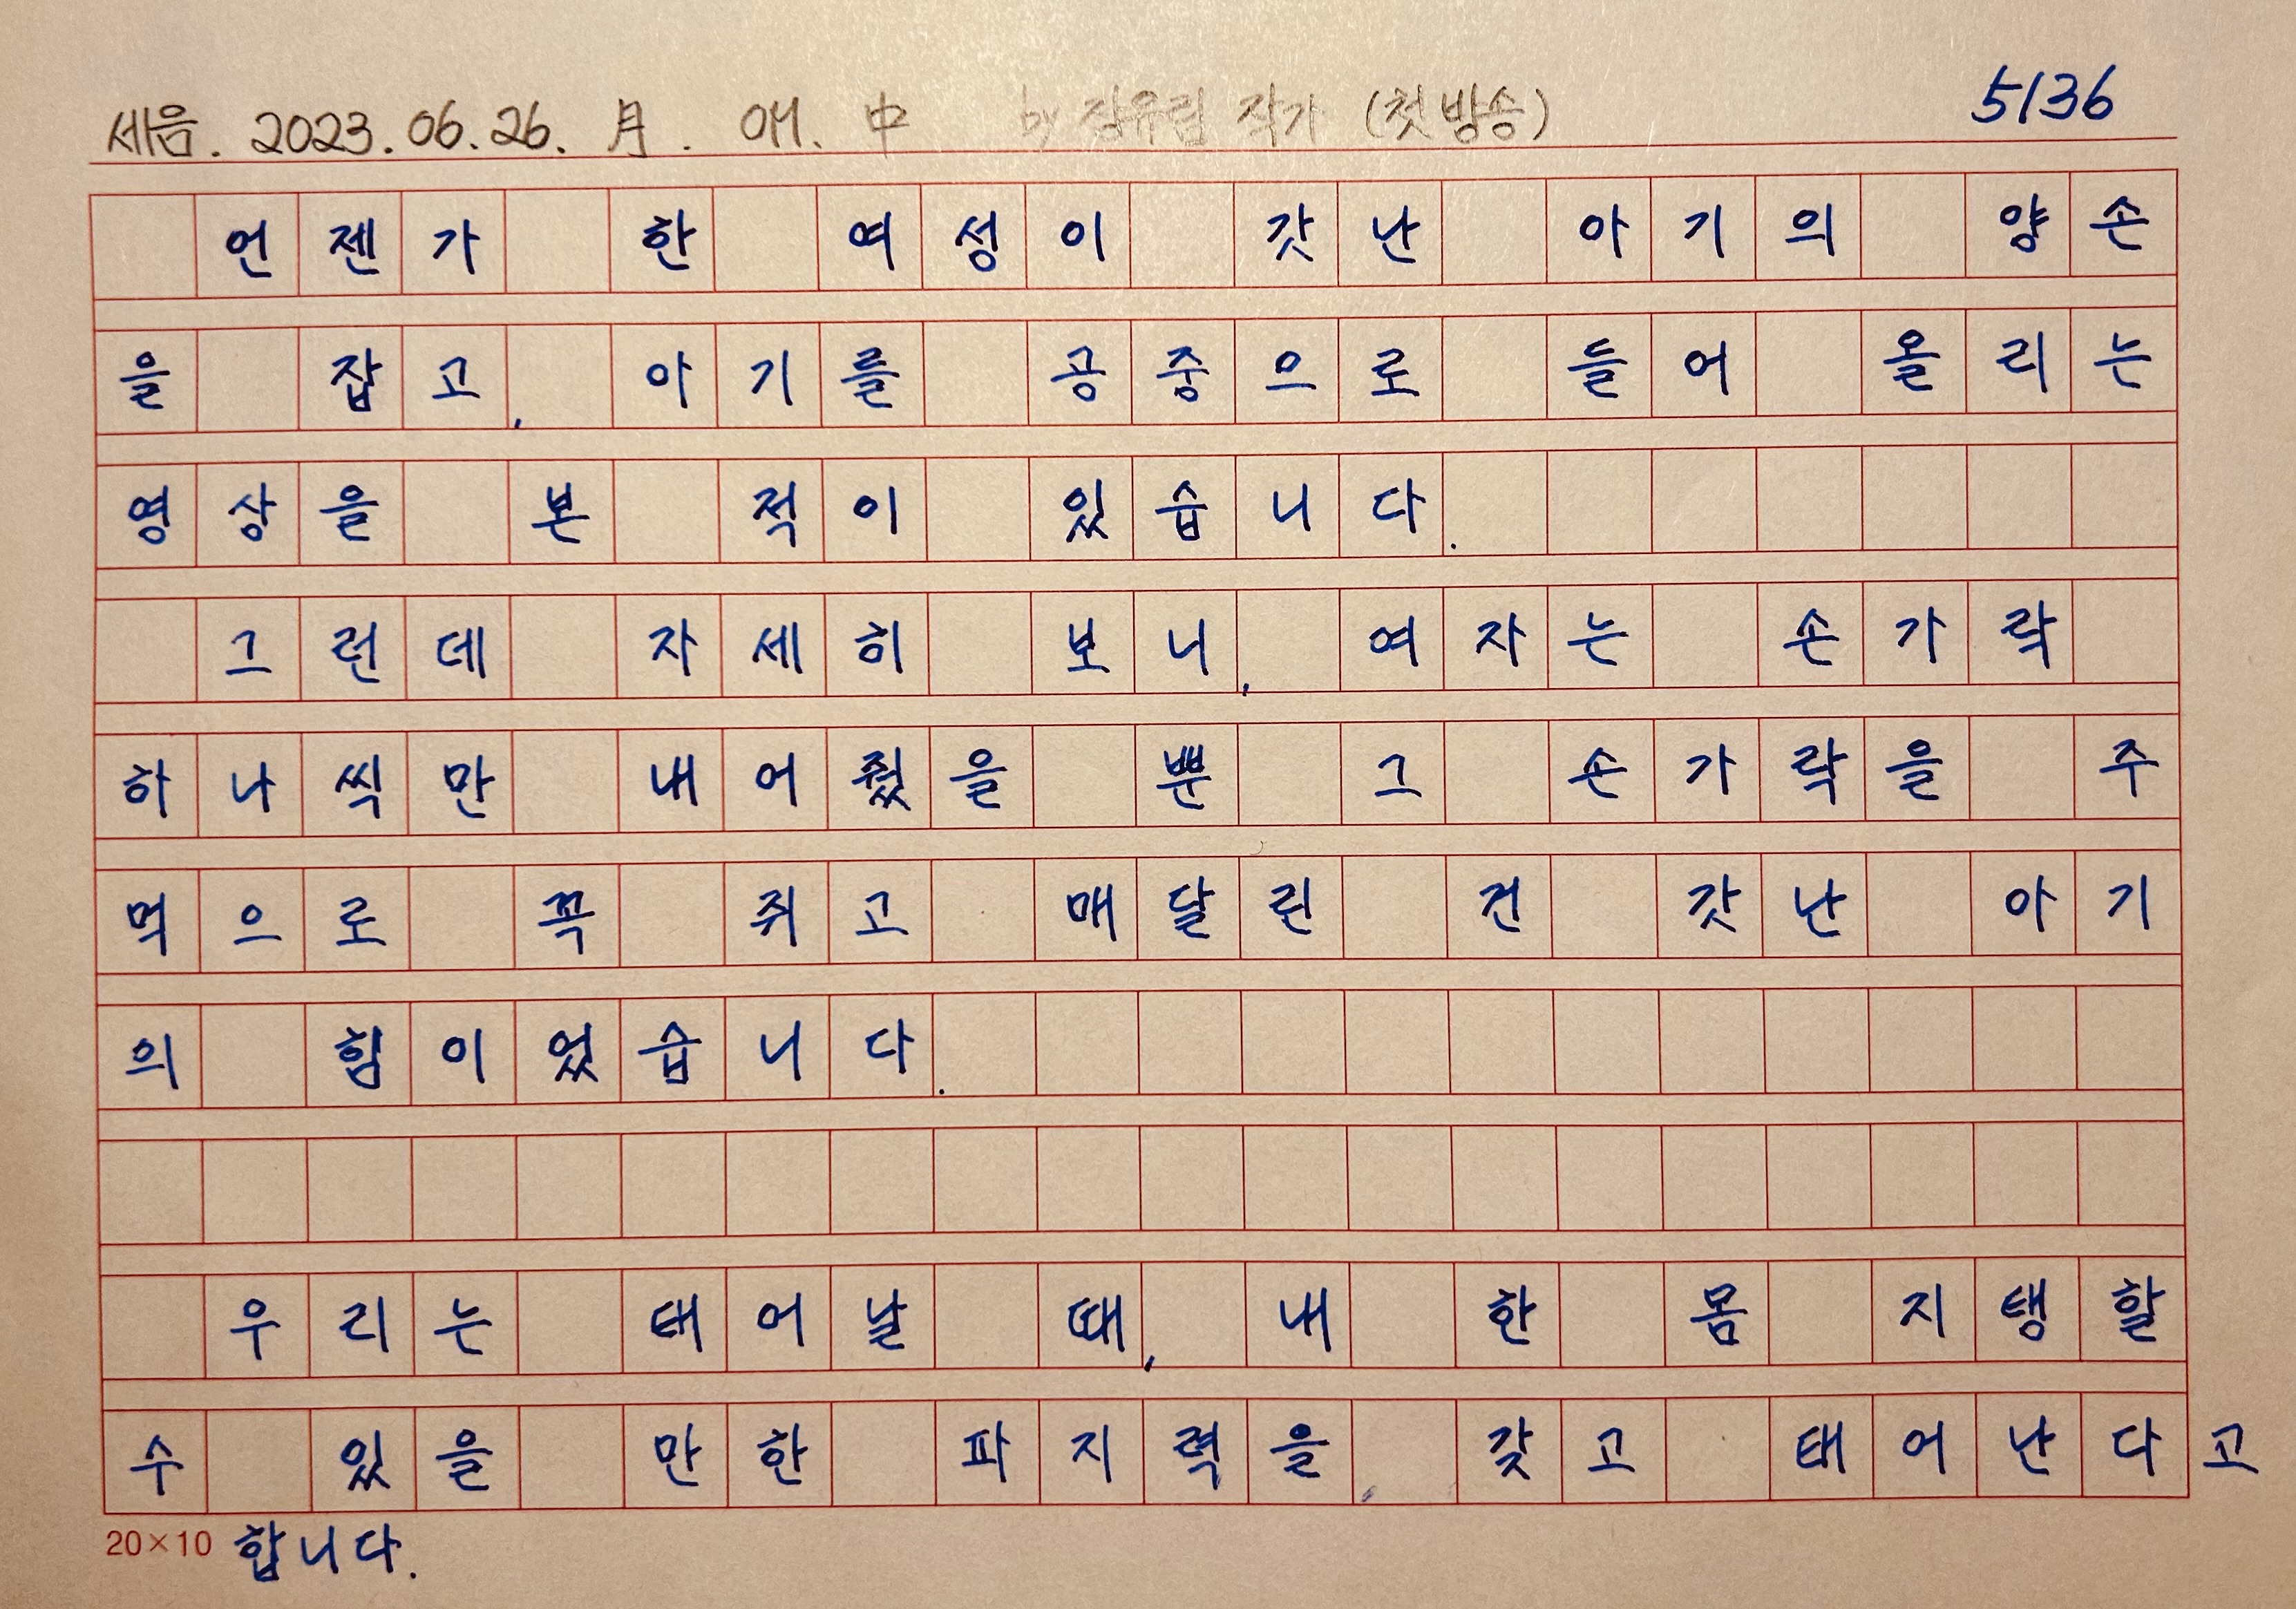 세음. 2023.06.26. 月. 에. 中 by 장유림 작가 (첫 방송) 5136
언젠가 한 여성이 갓난 아기의 양손
을 잡고, 아기를 공중으로 들어 올리는
영상을 본 적이 있습니다.
그런데 자세히 보니, 여자는 손가락
하나씩만 내어줬을 뿐 그 손가락을 주
먹으로 꼭 쥐고 매달린 건 갓난 아기
의 힘이었습니다.
우리는 태어날 때, 내 한 몸 지탱할
수 있을 만한 파지력을, 갖고 태어난다고
20×10 합니다.